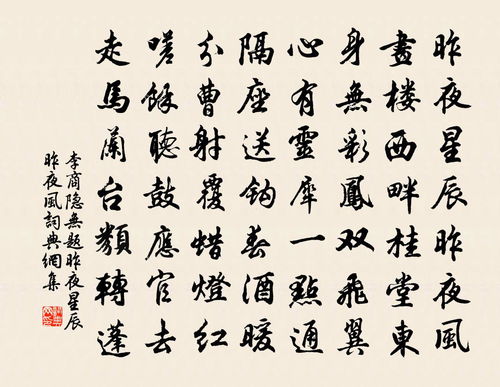 昨夜星辰昨夜風
畫楼西畔桂堂東
身無彩鳳双飛翼
心有靈犀一點通
隔座送鈎春酒暖
分曹射覆蜡燈红
嗟餘聽鼓應官去
走馬蘭台類轉蓬
李商隐無题昨夜星辰
昨夜風詞典網集